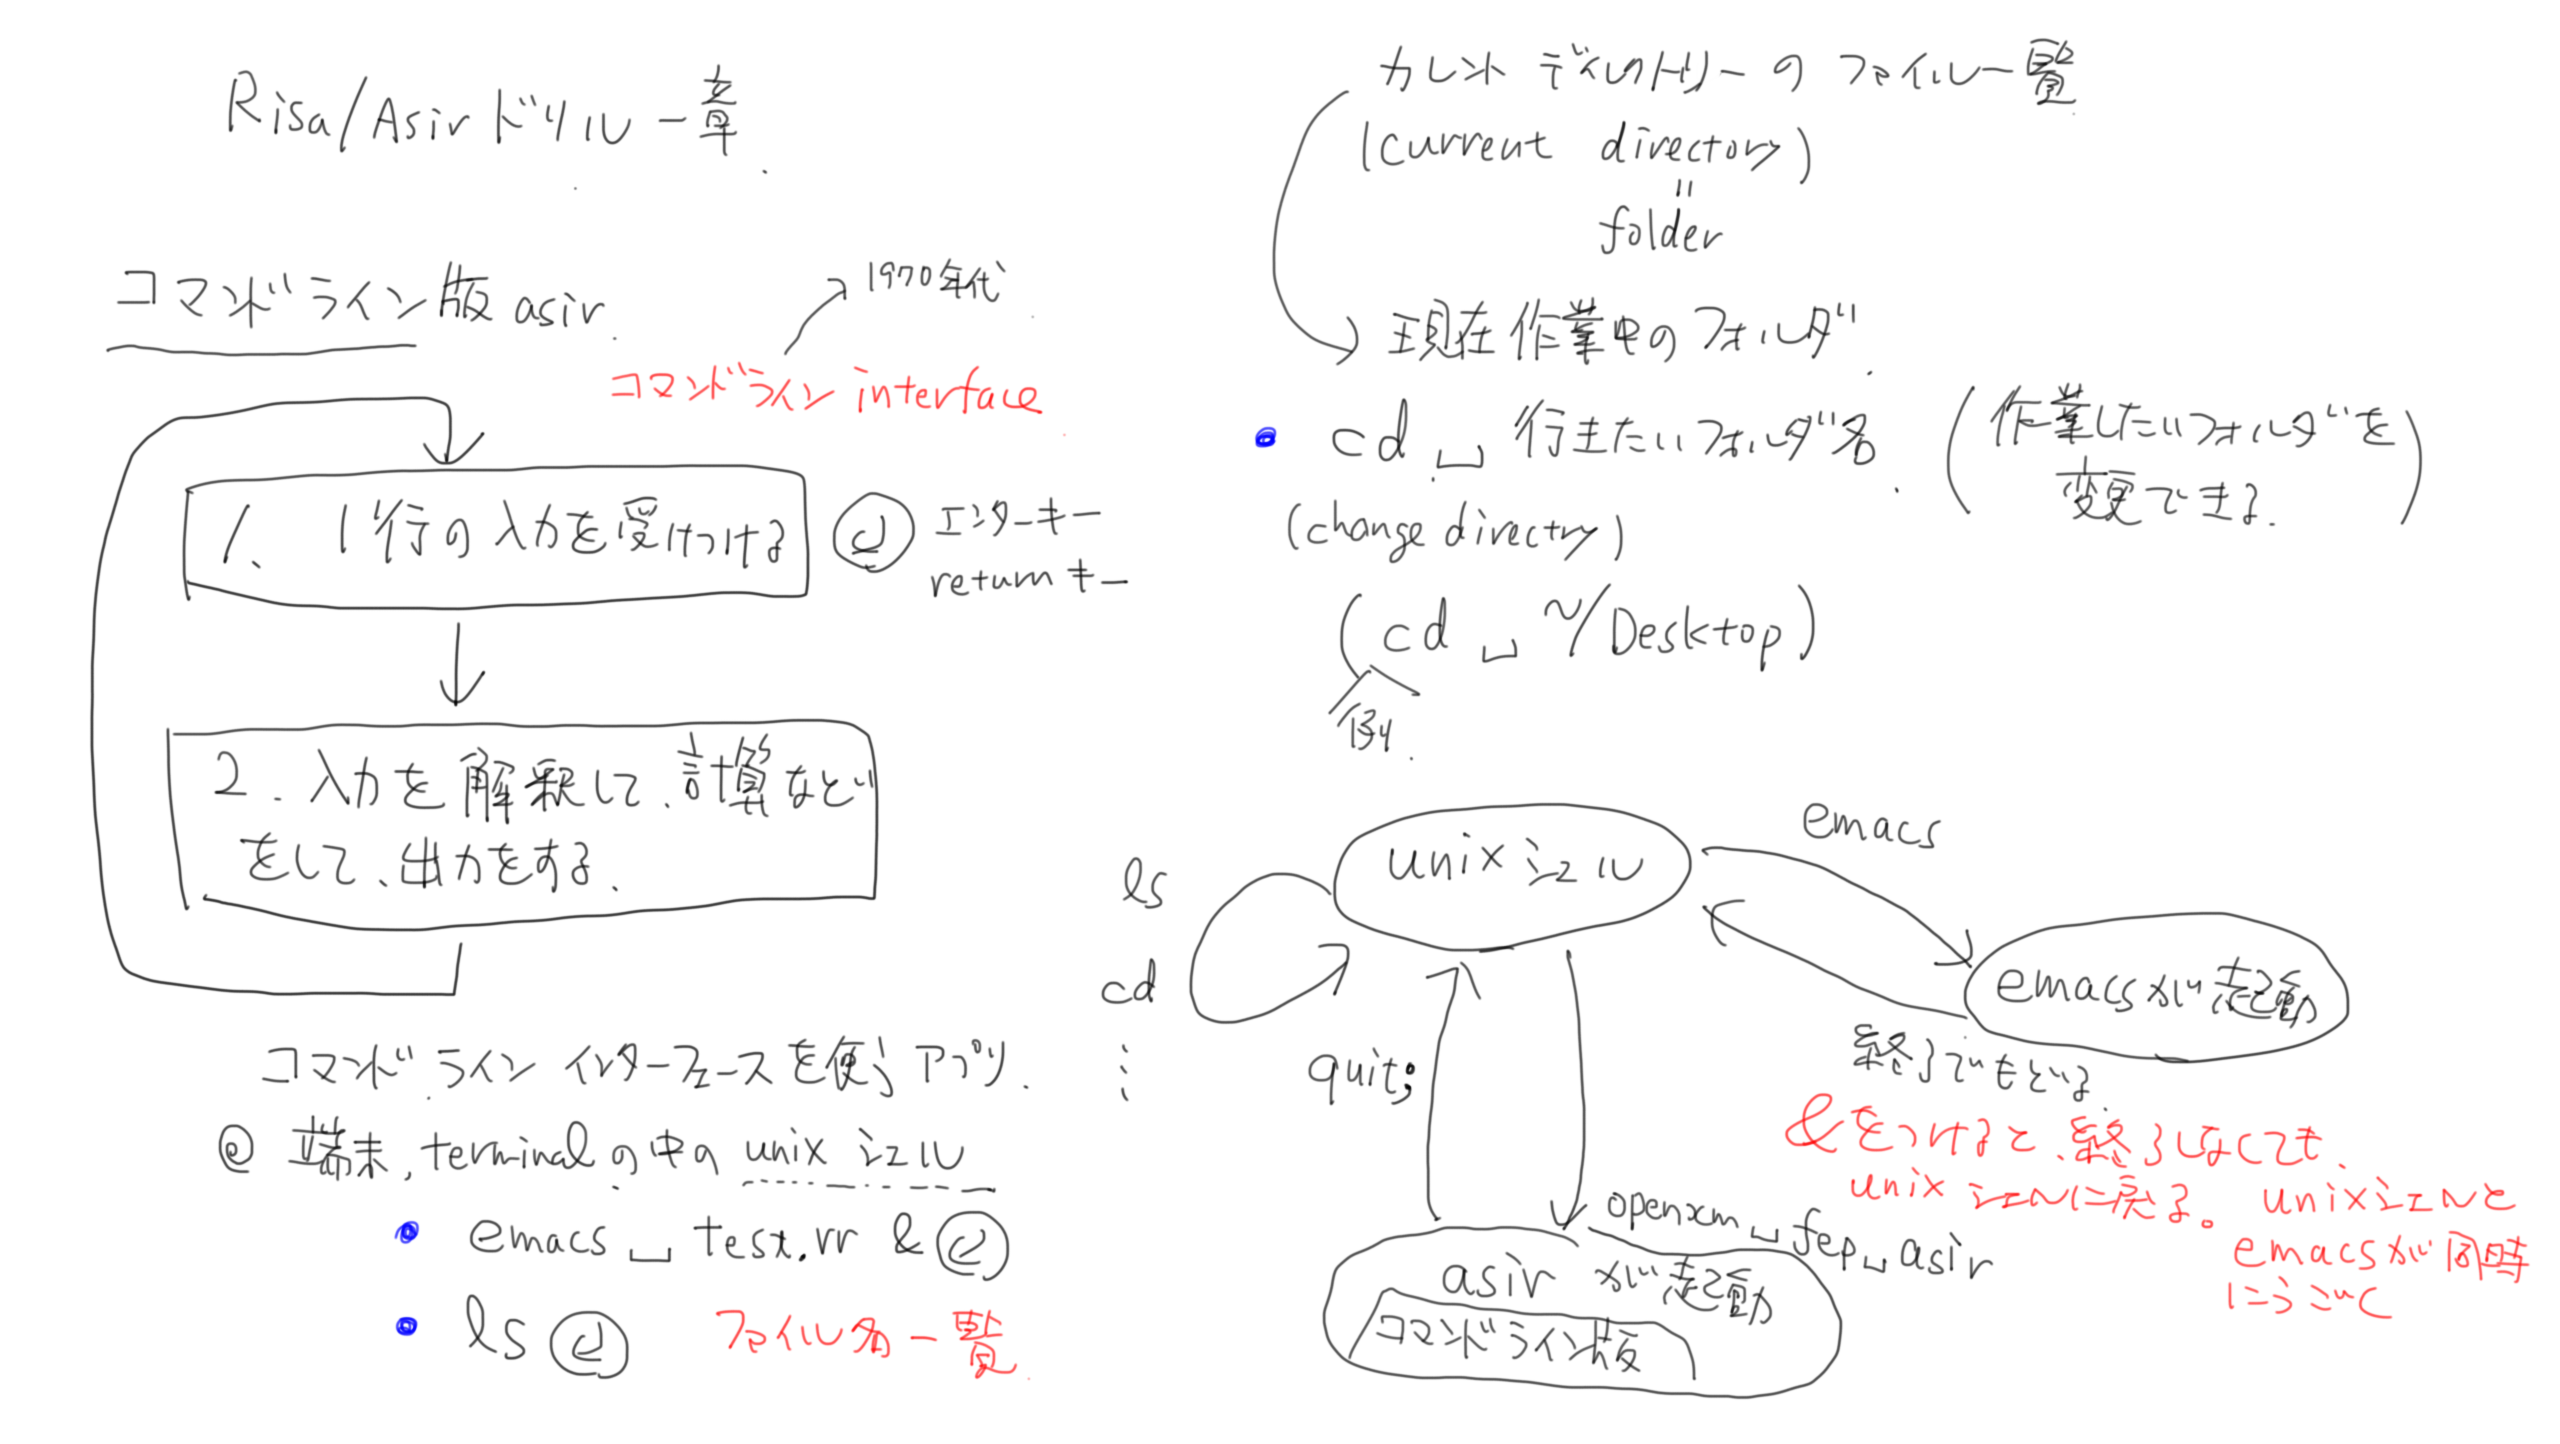 Risa/Asir ドリル 一章.
コマンドライン版 asir.
1970年代
コマンドライン interface
1、 1行の入力を受けつける
エンターキー
return キー
2. 入力を解釈して、計算など
をして、出力をする.
コマンドラインインターフェースを使うアプリ.
@ 端末, terminal の中の unix シェル
• emacs ␣ test.rr &
• ls ファイル名一覧.
カレントディレクトリーの ファイル一覧
(current directory)
"
folder
現在作業中のフォルダ.
• cd ␣ 行きたいフォルダ名.
(作業したいフォルダを
変更できる.)
(change directry)
(cd ␣ ~/Desktop)
例.
unix シェル
emacs
ls
cd
⋮
emacsが起動
終了でもどる.
quit;
&をつけると、終了しなくても、
unix シェルに戻る。 unixシェルと
emacsが同時
にうごく
openxm ␣ fep ␣ asir
asir が起動
コマンドライン版